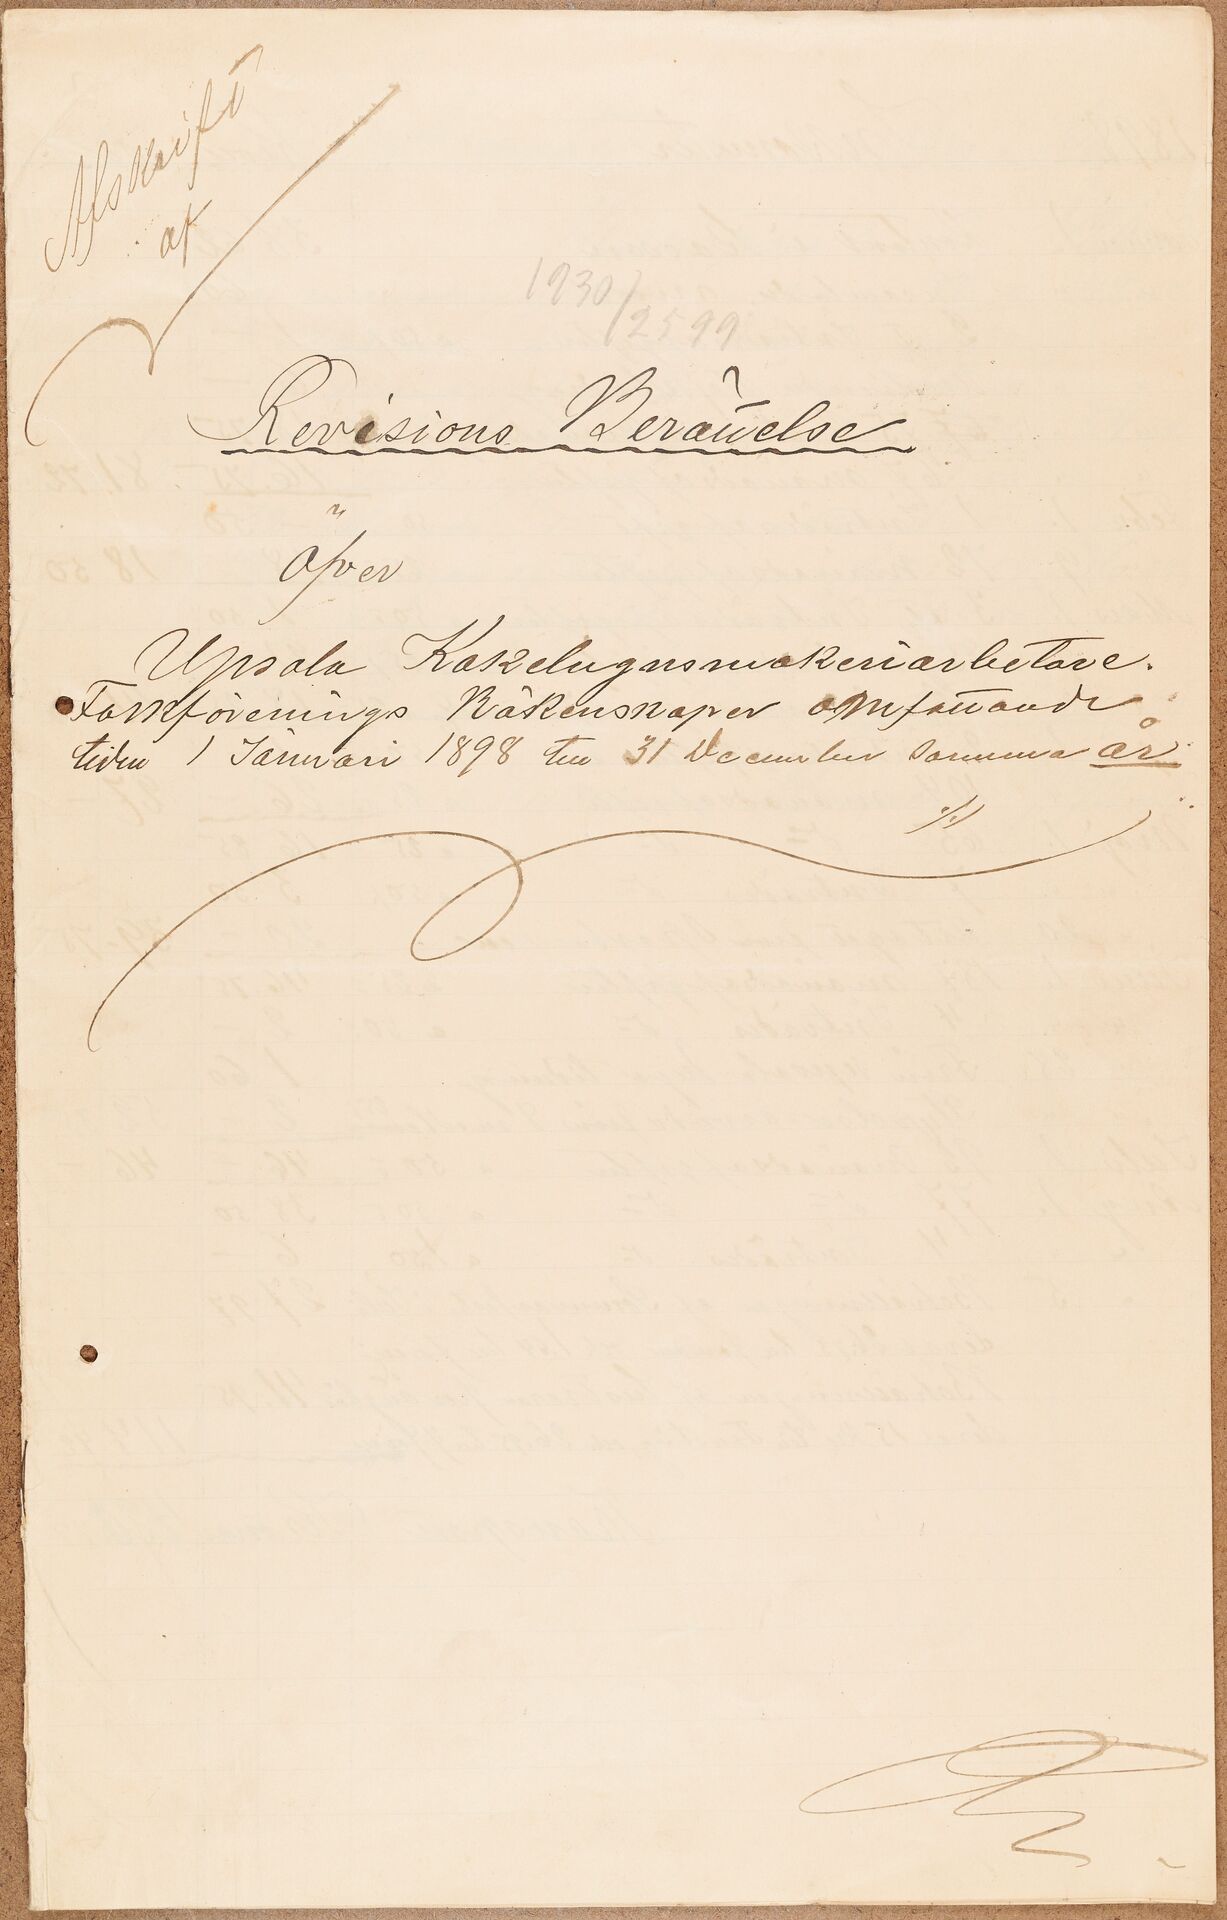 Afskrift
af
1930/2599
Revisions Berättelse
öfver
Upsala Kakelugnsmakeriarbetare.
Fackförenings Räkenskaper omfattande
tiden 1 Januari 1898 till 31 December samma år